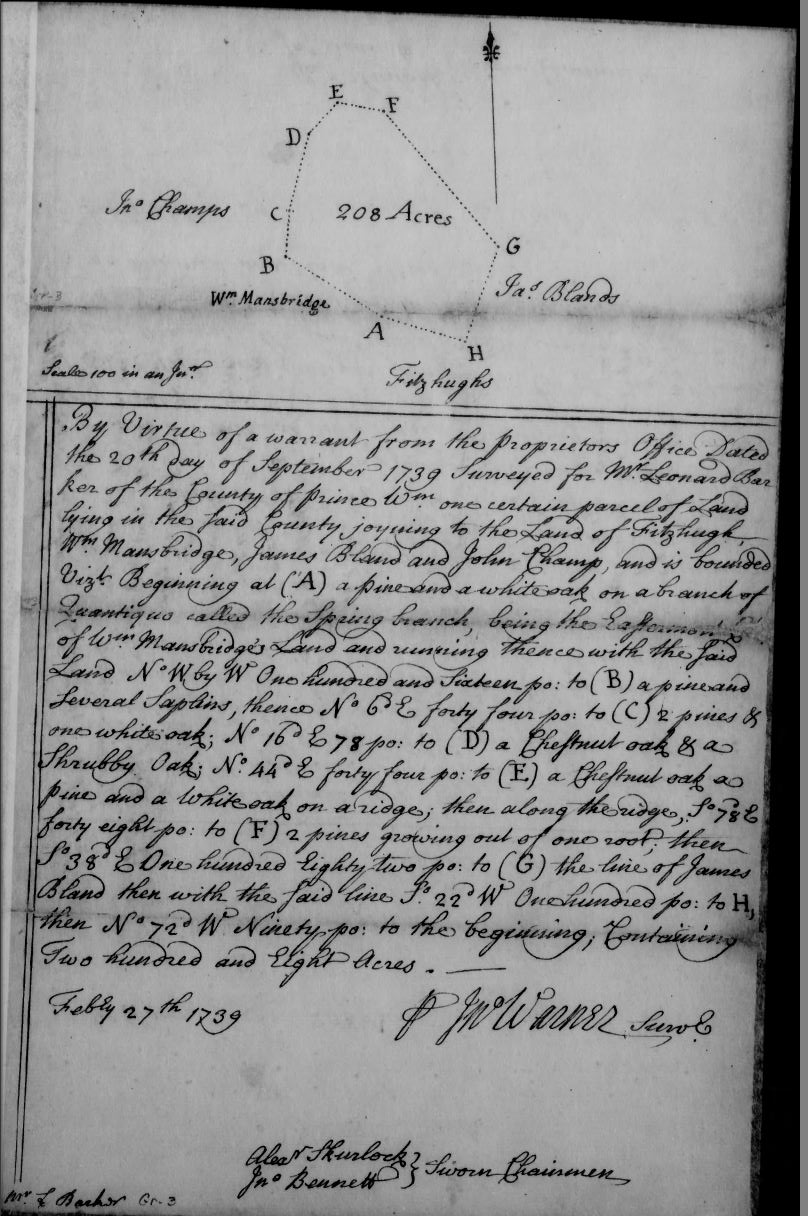 E
F
D
Jno Champs
C
208 Acres
G
B
Jas Blands
Wm Mansbridge
Gr-3
A
H
Scale 100 in an Jn.
Fitzhughs
By Virtue of a warrant from the Proprietors Office Dated
the 20th day of September 1739 Surveyed for Mr. Leonard Bar
ker of the County of Prince Wm one certain parcel of Land
lying in the said County joyning to the Land of Fitzhugh,
Wm. Mansbridge, James Bland and John Champ, and is bounded
Vizt. Beginning at (A) a pine and a white oak on a branch of
Quantiquo called the Spring branch, being the
of Wm Mansbridge's Land and running thence with the said
Land No W by W One hundred and Sixteen po: to (B) a pine and
several Saplins, thence No 6d E forty four po: to (C) 2 pines &
one white oak; No 16d E 78 po: to (D) a Chestnut oak & a
Shrubby Oak; No. 44d E forty four po: to (E) a Chestnut oak a
pine and a White oak on a ridge; then along the ridge, So 78 E
forty eight po: to (F) 2 pines growing out of one root; then
So 38d E One hundred Eighty two po: to (G) the line of James
Bland then with the said line So. 22d W One hundred po: to H,
then No 72d W Ninety po: to the beginning; Containing
Two hundred and Eight Acres.
Febry 27th 1739
P Jno Warner Surv
Alexr Skurlock } Sworn Chainmen
Jno Bennett
Mr L Barker Gr-3